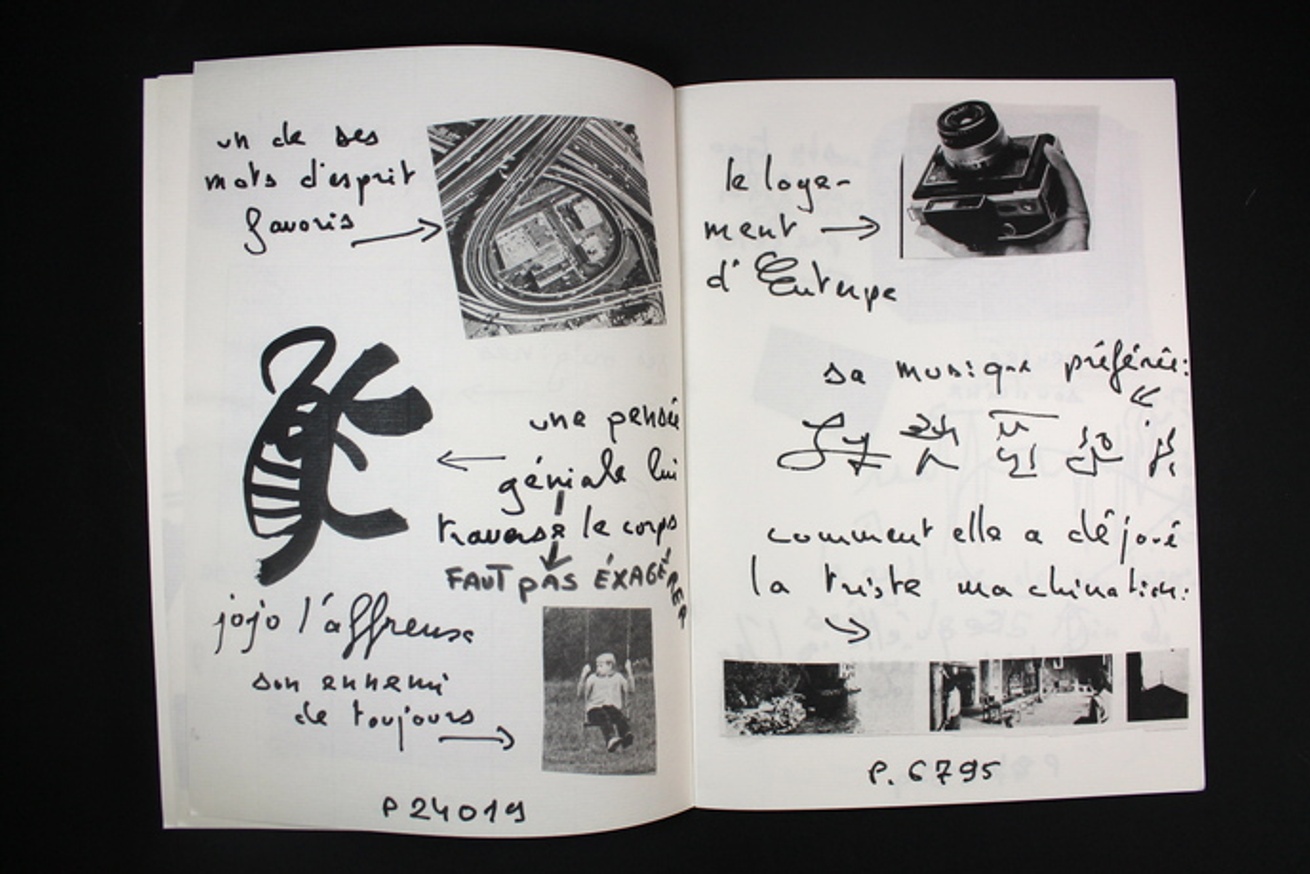 un de ses
mots d'esprit
favoris
une pensée
géniale lui
traverse le corps
FAUT PAS ÉXAGÉRER
jojo l'affreuse
son ennemi
de toujours
P 24019
le loge-
ment
d'Euterpe
sa musique préférée:
comment elle a déjoué
la triste machination:
P. 6795